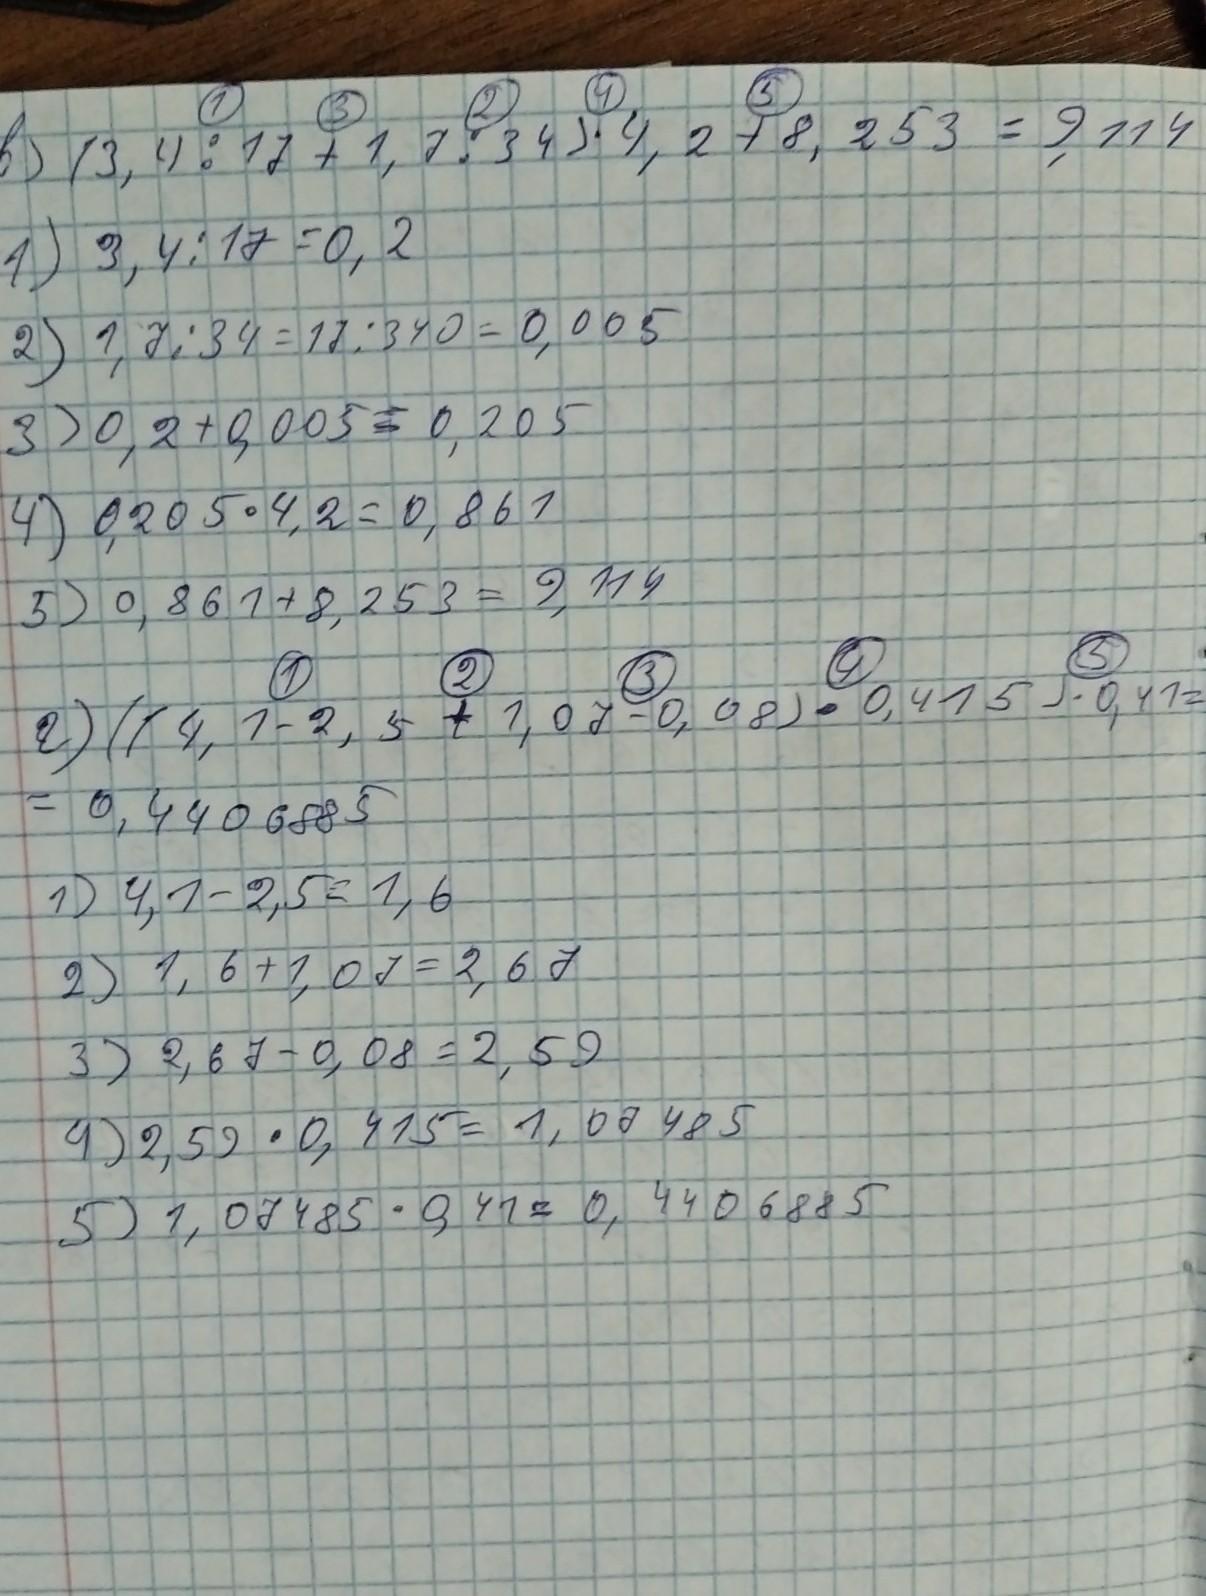 ① ③ ② ④ ⑤
в) (3,4:17+1,7:34)·4,2+8,253=9,114
1) 3,4:17=0,2
2) 1,7:34=17:340=0,005
3) 0,2+0,005=0,205
4) 0,205·4,2=0,861
5) 0,861+8,253=9,114
① ② ③ ④ ⑤
г) ((4,1-2,5+1,07-0,08)·0,415)·0,41=
=0,4406885
1) 4,1-2,5=1,6
2) 1,6+1,07=2,67
3) 2,67-0,08=2,59
4) 2,59·0,415=1,07485
5) 1,07485·0,41=0,4406885